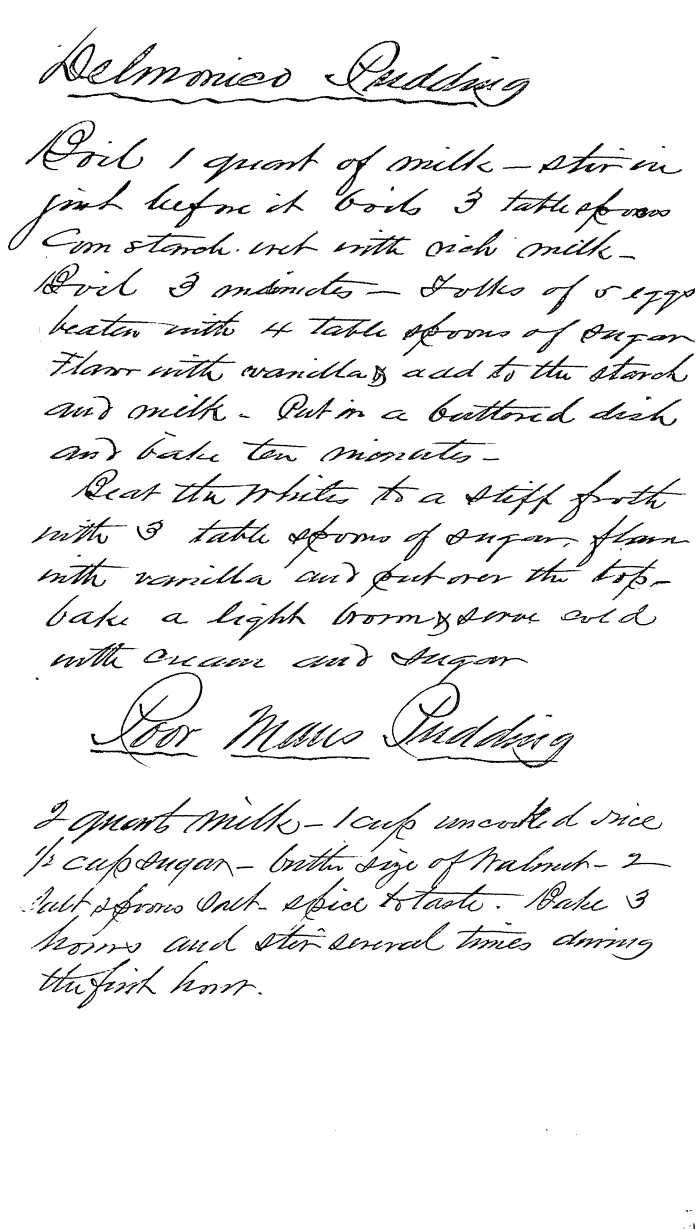 Delmonico Pudding
Boil 1 quart of milk – stir in
just before it boils 3 table spoons
Corn starch. wet with rich milk –
Boil 3 minutes – Yolks of 5 eggs
beaten with 4 table spoons of sugar
Flavor with vanilla & add to the starch
and milk – Put in a buttered dish
and bake ten minutes –
Beat the Whites to a stiff froth
with 3 table spoons of sugar, flavor
with vanilla and put over the top –
bake a light brown & serve cold
with cream and sugar
Poor Mans Pudding
2 quarts milk – 1 cup uncooked rice
1/2 cup sugar – butter size of Walnut – 2
Salt spoons Salt – spice to taste. Bake 3
hours and stir several times during
the first hour.